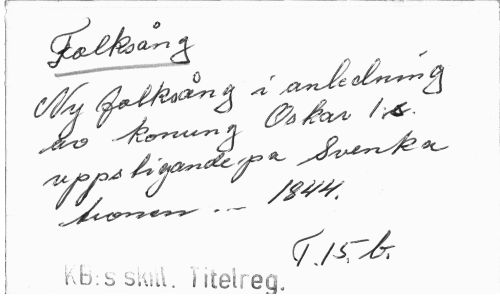 Folksång
Ny folksång i anledning
av konung Oskar I:s.
uppstigande på Svenska
tronen ... 1844.
T.15.b.
KB:s skill. Titelreg.